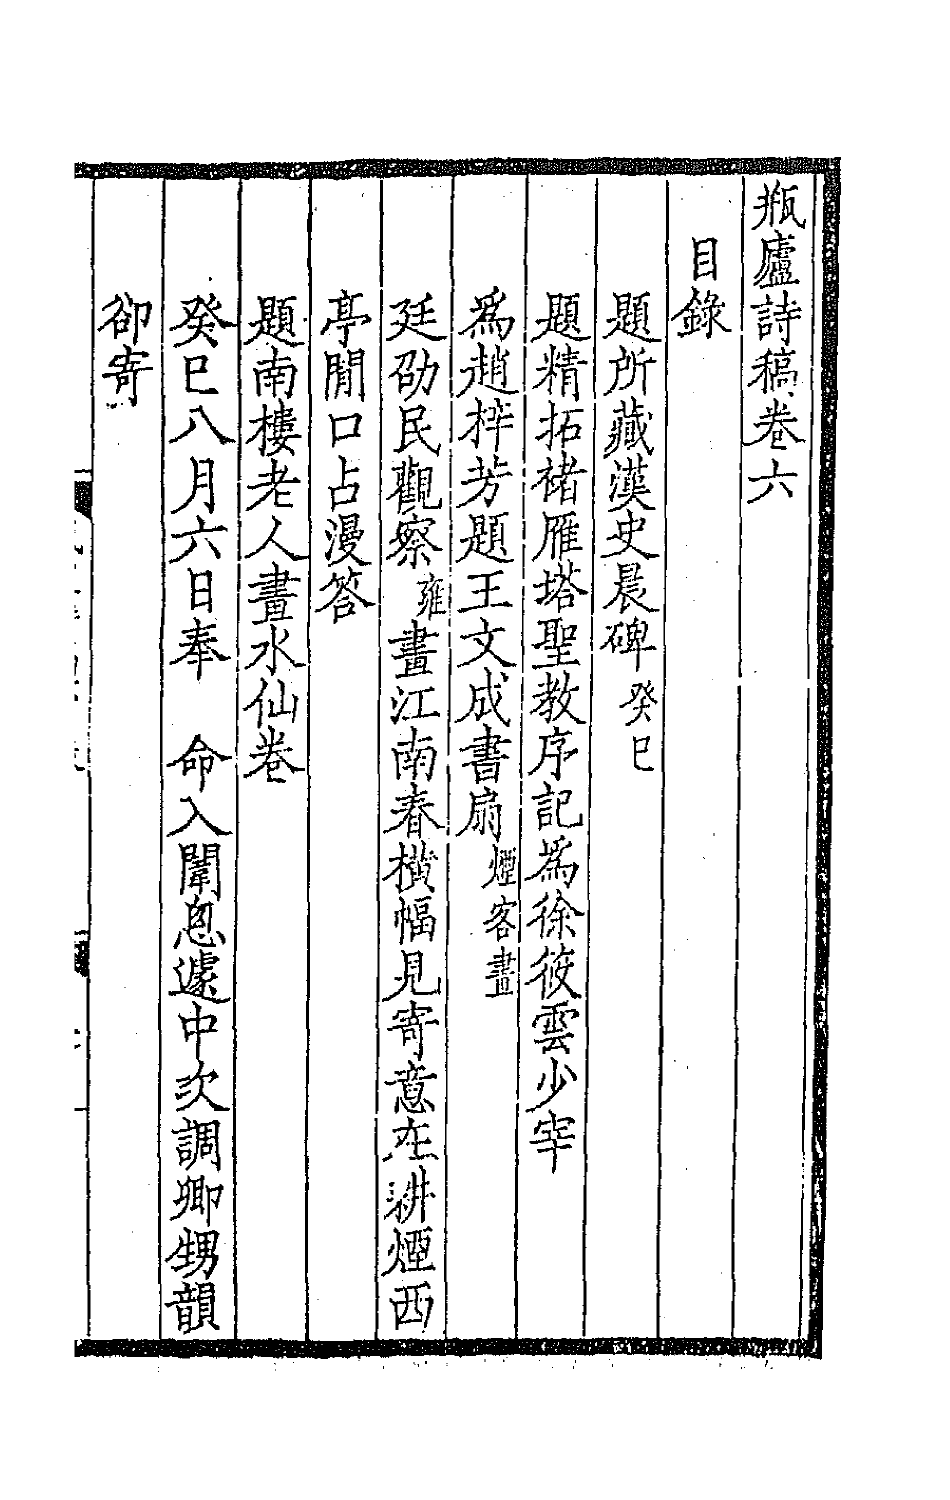 瓶廬詩稿卷六
目錄
題所藏漢史晨碑 癸巳
題精拓褚雁塔聖教序記爲徐筱雲少宰
爲趙梓芳題王文成書扇 煙客畫
廷劭民觀察 雍 畫江南春橫幅見寄意在耕煙西
亭閒口占漫答
題南樓老人畫水仙卷
癸巳八月六日奉 命入闈悤遽中次調卿甥韻
卻寄